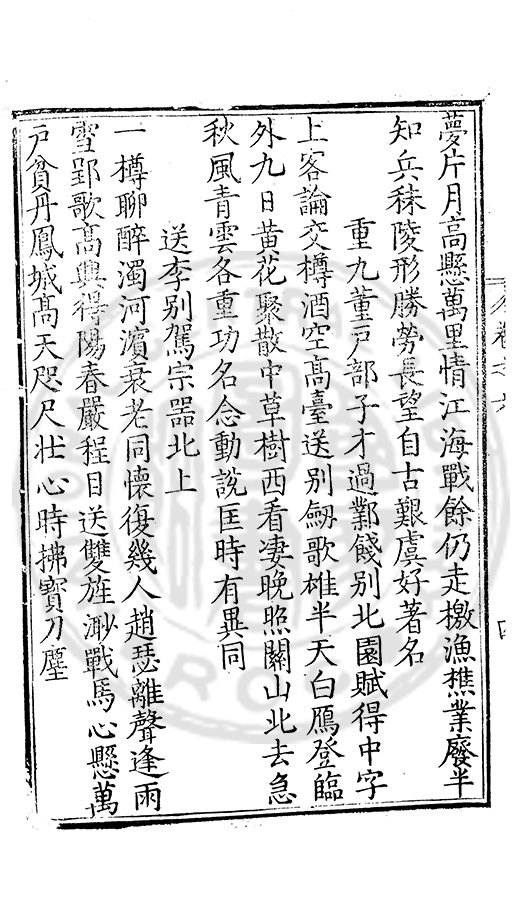 夢片月高懸萬里情江海戰餘仍走檄漁樵業廢半
知兵秣陵形勝勞長望自古艱虞好著名
重九董戶部子才過鄴餞別北園賦得中字
上客論交樽酒空高臺送別劒歌雄半天白鴈登臨
外九日黃花聚散中草樹西看凄晚照關山北去急
秋風青雲各重功名念動說匡時有異同
送李別駕宗器北上
一樽聊醉濁河濵衰老同懷復幾人趙瑟離聲逢雨
雪郢歌高興得陽春嚴程目送雙旌渺戰馬心懸萬
戶貧丹鳳城高天咫尺壯心時拂寶刀塵